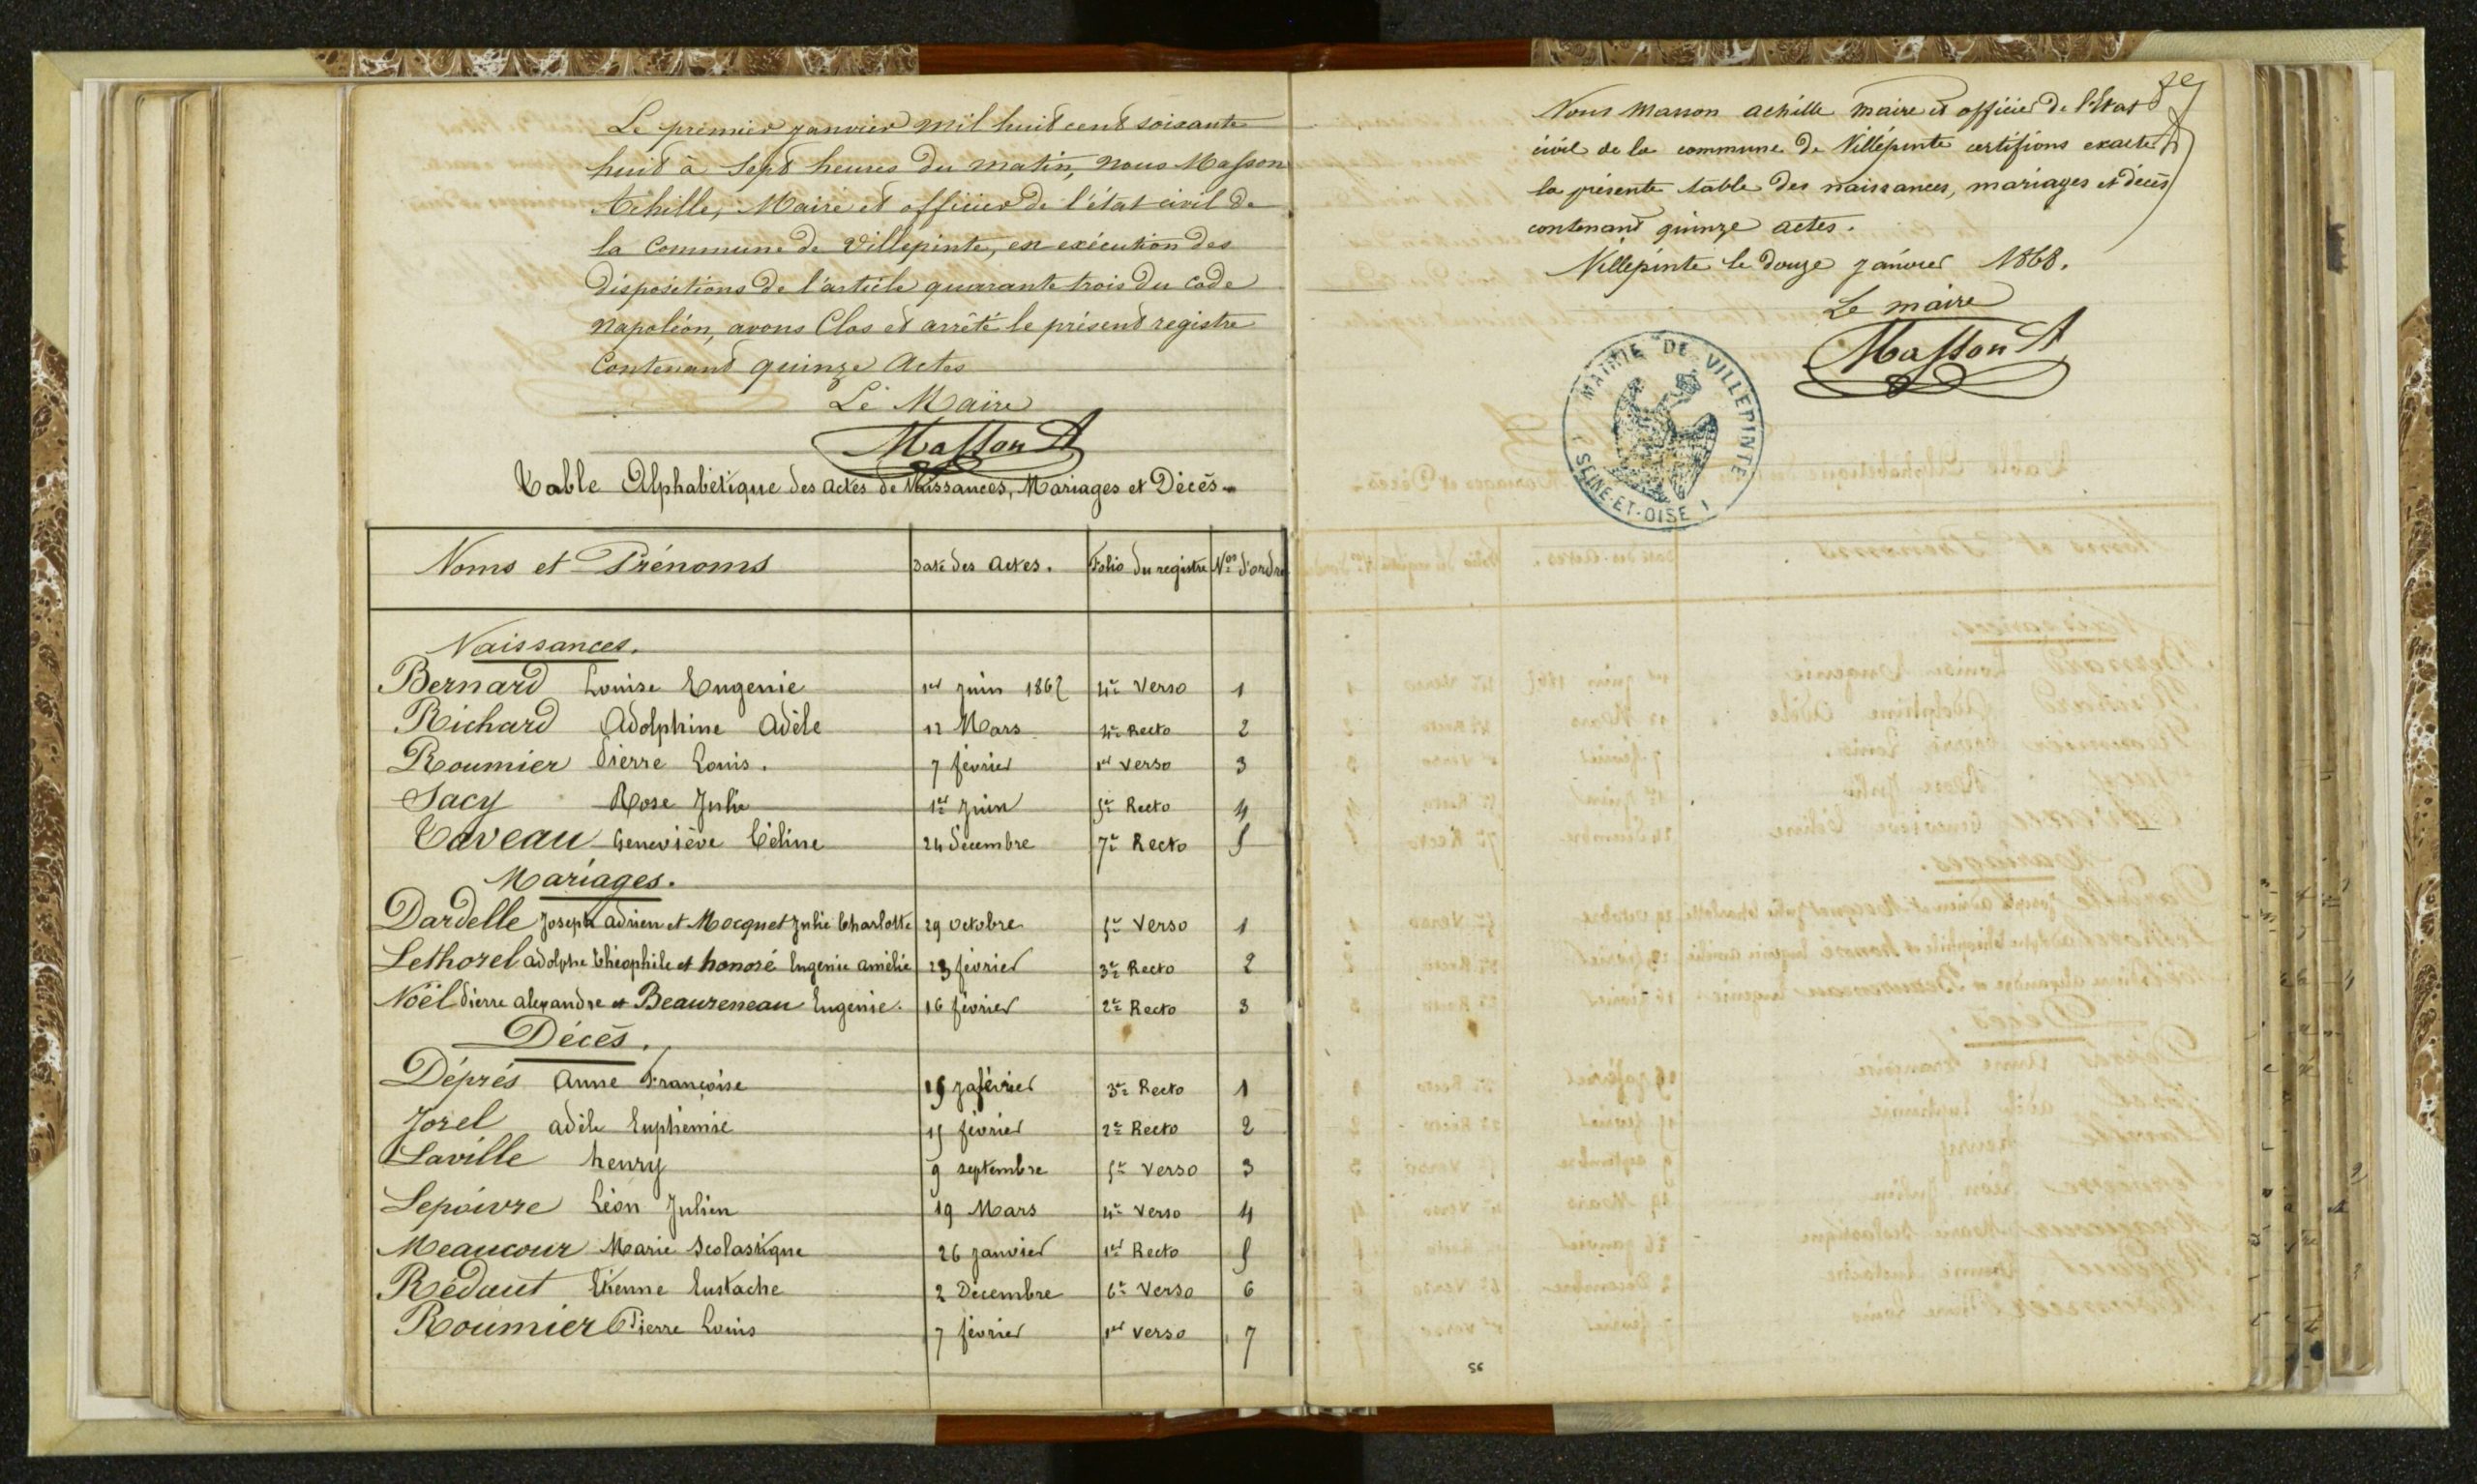 Le premier janvier mil huit cent soixante
huit à sept heures du matin, nous Masson
Achille, Maire et officier de l'état civil de
la Commune de Villepinte, en exécution des
dispositions de l'article quarante trois du Code
Napoléon, avons Clos et arrêté le présent registre
Contenant quinze Actes
Le Maire
Masson A
Table Alphabétique des actes de Naissances, Mariages et Décès
Noms et Prénoms Date des Actes. Folio du registre Nos d'ordre
Naissances.
Bernard Louise Eugenie 1er juin 1867 4e Verso 1
Richard Adolphine Adèle 12 Mars 4e Recto 2
Roumier Pierre Louis. 7 février 1er verso 3
Sacy Rose Julie 1er juin 5e Recto 4
Taveau Geneviève Céline 24 décembre 7e Recto 5
Mariages.
Dardelle Joseph adrien et Mocquet Julie Charlotte 29 octobre 5e Verso 1
Lethorel adolphe théophile et honoré Eugenie amélie 23 février 3e Recto 2
Noël Pierre alexandre et Beaureneau Eugenie. 16 février 2e Recto 3
Décès.
Déprés Anne Françoise février 3e Recto 1
Jorel adèle Euphémie 15 février 2e Recto 2
Laville henry 9 septembre 5e verso 3
Lepoivre Léon Julien 19 Mars 4e verso 4
Meaucour Marie Scolastique 26 janvier 1er Recto 5
Rédaut Etienne Eustache 2 Décembre 6e Verso 6
Roumier Pierre Louis 7 février 1er verso 7
Nous Masson achille maire et officier de l'état
civil de la commune de Villepinte certifions exacte
la présente table des naissances, mariages et décès
contenant quinze actes.
Villepinte le douze janvier 1868.
Le maire
Masson A
MAIRIE DE VILLEPINTE
SEINE-ET-OISE
56